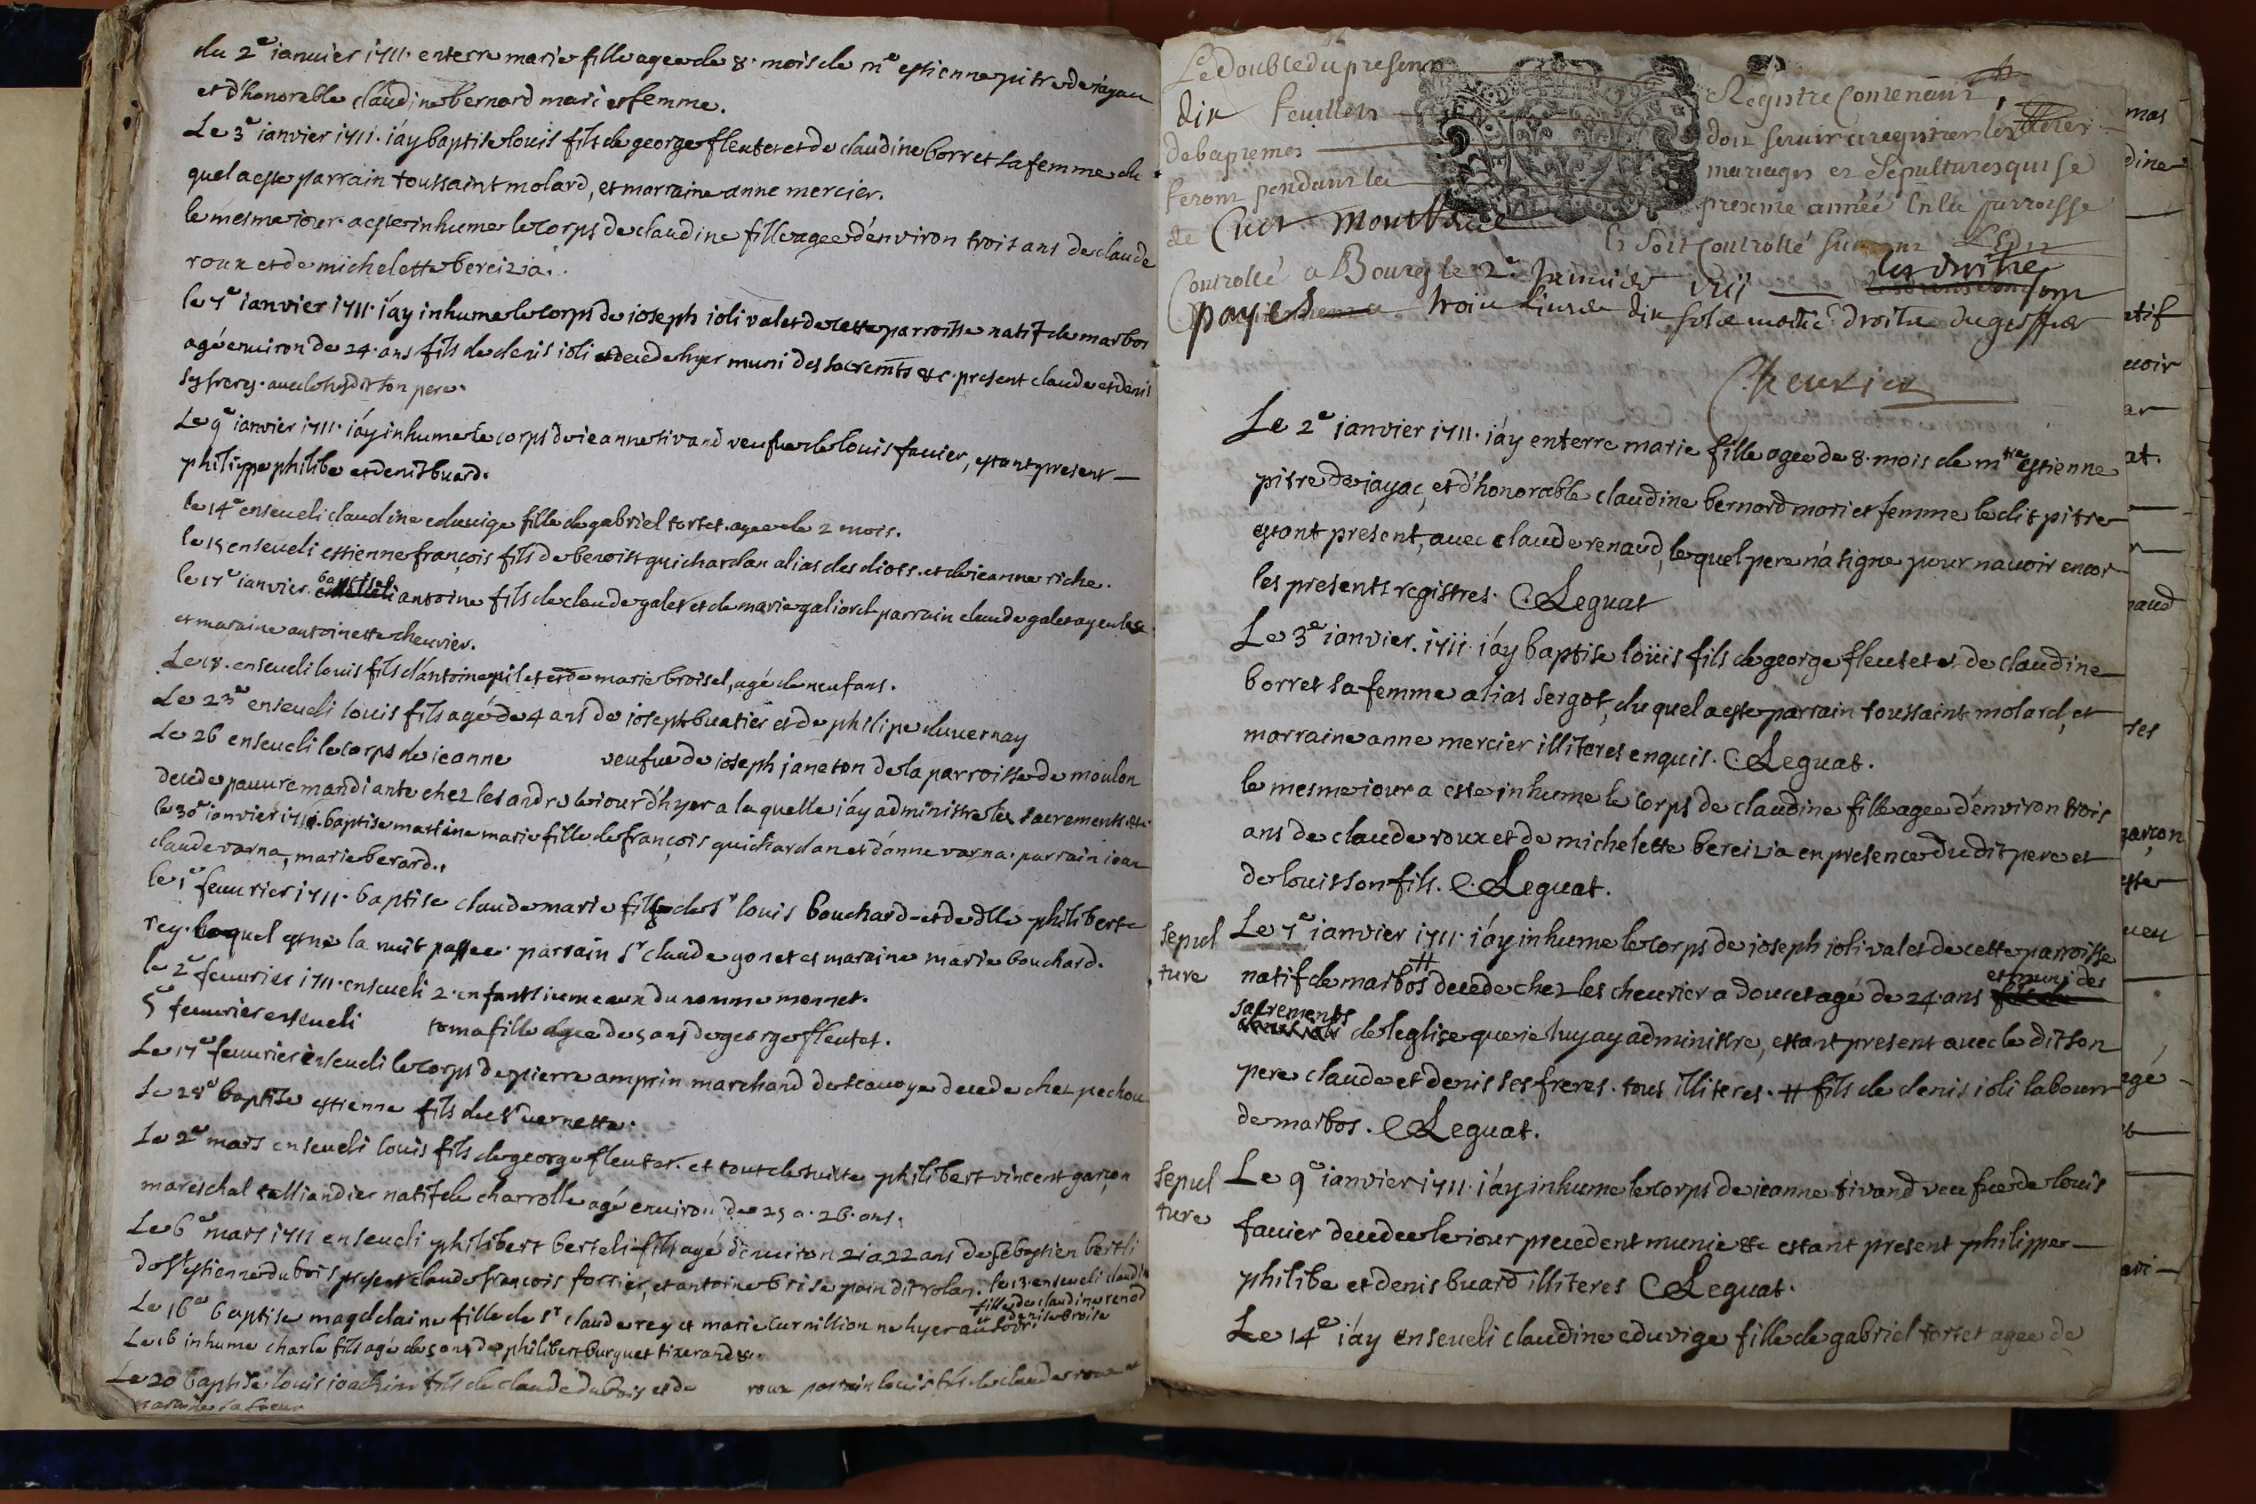 du 2e ianvier 1711. enterre marie fille agee de 8. mois de me estienne pitre de iayac
et d'honorable claudine bernard mari et femme.
Le 3e ianvier 1711. i'ay baptise louis fils de george fleutet et de claudine borret sa femme du
quel a este parrain toussaint molard, et marraine anne mercier.
le mesme iour a este inhume le corps de claudine fille agee d'environ trois ans de claude
roux et de michelette bereizia.
le 7e ianvier 1711. i'ay inhume le corps de ioseph ioli valet de cette parroisse natif de marbos
agé environ de 24. ans fils de denis ioli decede hyer muni des sacremts &c. present claude et denis
ses freres. avec le dit son pere.
Le 9e ianvier 1711. i'ay inhume le corps de ieanne tivand veufve de louis favier, estant present
philippe philibe et denis buard.
le 14e enseveli claudine eduvige fille de gabriel tortet. agee de 2 mois.
le 15 enseveli estienne françois fils de benoist guichardan alias des diots. et de ieanne riche.
le 17e ianvier. baptisé antoine fils de claude galet et de marie galiord parrain claude galet ayeul
et maraine antoinette chevrier.
Le 18. enseveli louis fils d'antoine pilet et de marie broisel, agé de neuf ans.
Le 23e enseveli louis fils agé de 4 ans de ioseph buatier et de philipe duvernay
Le 26 enseveli le corps de ieanne veufve de ioseph janeton de la parroisse de moulon
decede pauvre mandiante chez les andre le iour d'hyer a laquelle i'ay administre les sacrements &c.
le 30e ianvier 1711. baptise marie fille de françois guichardan et d'anne varna. parrain iean
claude varna, marie berard.
le 1er fevurier 1711. baptise claude marie fille de sr louis bouchard et de dlle philiberte
rey. lequel est ne la nuit passee. parrain sr claude gonet et maraine marie bouchard.
le 2e fevurier 1711. enseveli 2. enfants iumeaux du nomme monnet.
5e fevurier enseveli toma fille agee de 5 ans de george fleutet.
Le 17e fevurier enseveli le corps de pierre amprin marchand de scavoye decede chez pechou
Le 28e baptise estienne fils de sr vernette.
Le 2e mars enseveli louis fils de george fleutet. et tout de suitte philibert vincent garçon
mareschal talliandier natif de charrolle agé environ de 25 a. 26. ans.
Le 6e mars 1711 enseveli philibert berteli fils agé d'environ 21 a 22 ans de sebastien berteli
de st estienne du bois present claude françois forrier, et antoine brise pain dit rolan. le 13. enseveli claudine
fille de claudine renod
et denise broise
Le 16e baptise magdelaine fille de sr claude rey et marie curnillion ne hyer au soir.
Le 16 inhume charle fils agé de 5 ans de philibert burguet tixerand &.
Le 20 baptisé louis ioachim fils de claude dubois et de roux parrain louis fils de claude roux et
maraine sa soeur
Le double du present Registre Contenant
dix feuillets doit servir a registrer les actes
de baptemes mariages et Sepultures qui se
feront pendant la presente année En la parroisse
de Cuet Montbacé Et soit Controllé suivant L'Edit
Controllé a Bourg le 2e Janvier 1711 les droits sont
payes trois livres dix sols moitié droits du greffier
Chevrier
Le 2e ianvier 1711. i'ay enterre marie fille agee de 8. mois de mtre estienne
pitre de iayac, et d'honorable claudine bernard mari et femme le dit pitre
estant present, avec claude renaud, lequel pere n'a signe pour n'avoir encor
les presents registres. C. Leguat
Le 3e ianvier. 1711. i'ay baptise loüis fils de george fleutet et de claudine
borret sa femme alias sergot, du quel a este parrain toussaint molard, et
marraine anne mercier illiteres enquis. C. Leguat.
le mesme iour a este inhume le corps de claudine fille agee d'environ trois
ans de claude roux et de michelette bereizia en presence du dit pere et
de louis son fils. C. Leguat.
sepul
ture
Le 7e ianvier 1711. i'ay inhume le corps de ioseph ioli valet de cette parroisse
natif de marbos # decede chez les chevrier a doucet agé de 24. ans et muni des
sacrements de l'eglise que ie luy ay administre, estant present avec le dit son
pere claude et denis ses freres. tous illiteres. # fils de denis ioli labourr
de marbos. C. Leguat.
sepul
ture
Le 9e ianvier 1711. i'ay inhume le corps de ieanne tivand veufve de louis
favier decedee le iour precedent munie &c estant present philippe
philibe et denis buard illiteres C. Leguat.
Le 14e i'ay enseveli claudine eduvige fille de gabriel tortet agee de
mas
dine
atif
evoir
ar
at.
naud
ses
garçon
este
veu
agé